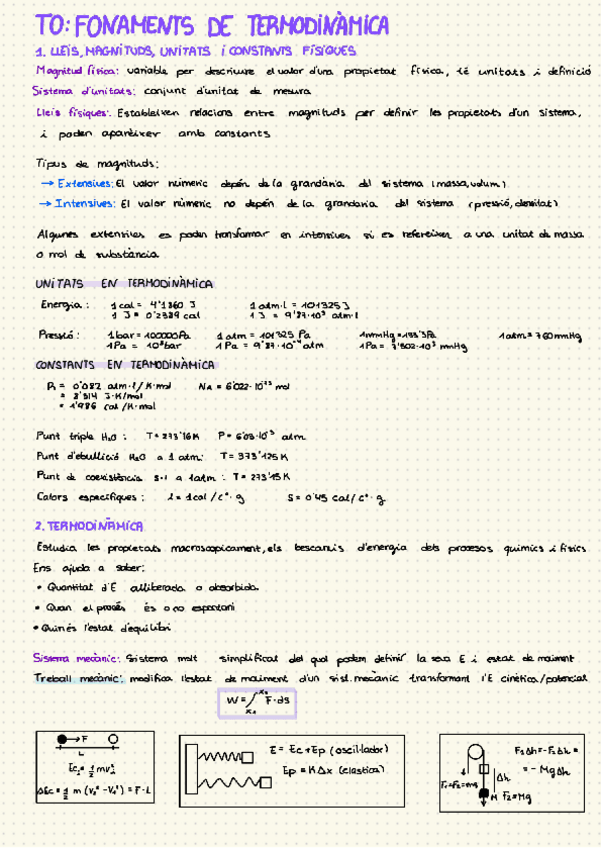 T0: FONAMENTS DE TERMODINÀMICA
1. LLEIS, MAGNITUDS, UNITATS i CONSTANTS FÍSIQUES
Magnitud física: variable per descriure el valor d'una propietat física, té unitats i definició
Sistema d'unitats: conjunt d'unitat de mesura
Lleis físiques: Estableixen relacions entre magnituds per definir les propietats d'un sistema,
i poden aparèixer amb constants
Tipus de magnituds:
→ Extensives: El valor númeric depèn de la grandària del sistema (massa, volum)
→ Intensives: El valor númeric no depèn de la grandaria del sistema (pressió, densitat)
Algunes extensives es poden transformar en intensives si es refereixen a una unitat de massa
o mol de substància
UNITATS EN TERMODINÀMICA
Energia: 1 cal = 4'1860 J 1 atm·l = 101'325 J
1 J = 0'2389 cal 1 J = 9'87·10³ atm·l
Pressió: 1 bar = 100000 Pa 1 atm = 101325 Pa 1 mmHg = 133'3 Pa 1 atm = 760 mmHg
1 Pa = bar 1 Pa = atm 1 Pa = 7'502·10³ mmHg
CONSTANTS EN TERMODINÀMICA
R = 0'082 atm·l/K·mol NA = 6'022·10²³ mol
= 8'314 J·K/mol
= 1'986 cal/K·mol
Punt triple H₂O: T = 273'16 K P = 6'03·10⁻³ atm
Punt d'ebullició H₂O a 1 atm: T = 373'125 K
Punt de coexistència s-l a 1 atm: T = 273'15 K
Calors específiques: l = 1 cal/cº·g S = 0'45 cal/cº·g
2. TERMODINÀMICA
Estudia les propietats macroscopicament, els bescanvis d'energia dels processos químics i físics
Ens ajuda a saber:
• Quantitat d'E alliberada o absorbida
• Quan el procés és o no espontani
• Quin és l'estat d'equilibri
Sistema mecànic: Sistema molt simplificat del qual podem definir la seva E i estat de moviment
Treball mecànic: modifica l'estat de moviment d'un sist. mecànic transformant l'E cinètica/potencial
W = ∫ F·ds
x₂
x₁
F
L
Ec₁ = ½ mv₁²
ΔEc = ½ m (v₂² - v₁²) = F·L
E = Ec + Ep (oscil·lador)
Ep = KΔx (elàstica)
F₁Δh = -F₂Δh =
= -MgΔh
Δh
F₁=F₂=mg
M F₂=Mg